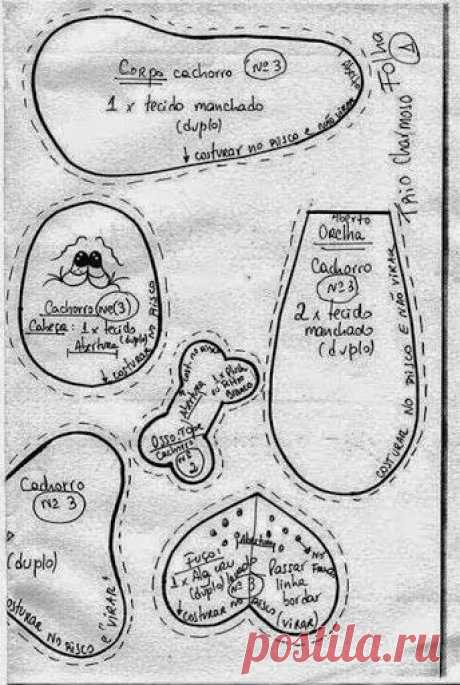 Corpo cachorro Nº 3
1 x tecido manchado
(duplo)
Aberto
↓ costurar no risco e não virar
Trio Charmoso Folha 1
Cachorro (Nº 3)
Cabeça: 1 x tecido
(duplo)
Abertura
↓ costurar no risco
Aberto
Orelha
Cachorro
Nº 3
2 x tecido
manchado
(duplo)
costurar no risco e não virar
cost. no risco
Abertura
1 x Plush
ou Feltro
Branco
Osso: Tope
Cachorro
Nº 2
Cachorro
Nº 3
(duplo)
costurar no risco e virar
Abertura
Fuço:
(duplo)
Nº 3
Passar
linha
bordar
↓ costurar no risco (virar)
postila.ru